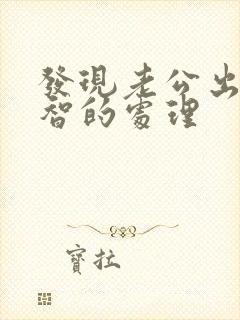 發現老公出
智的處理
寶拉